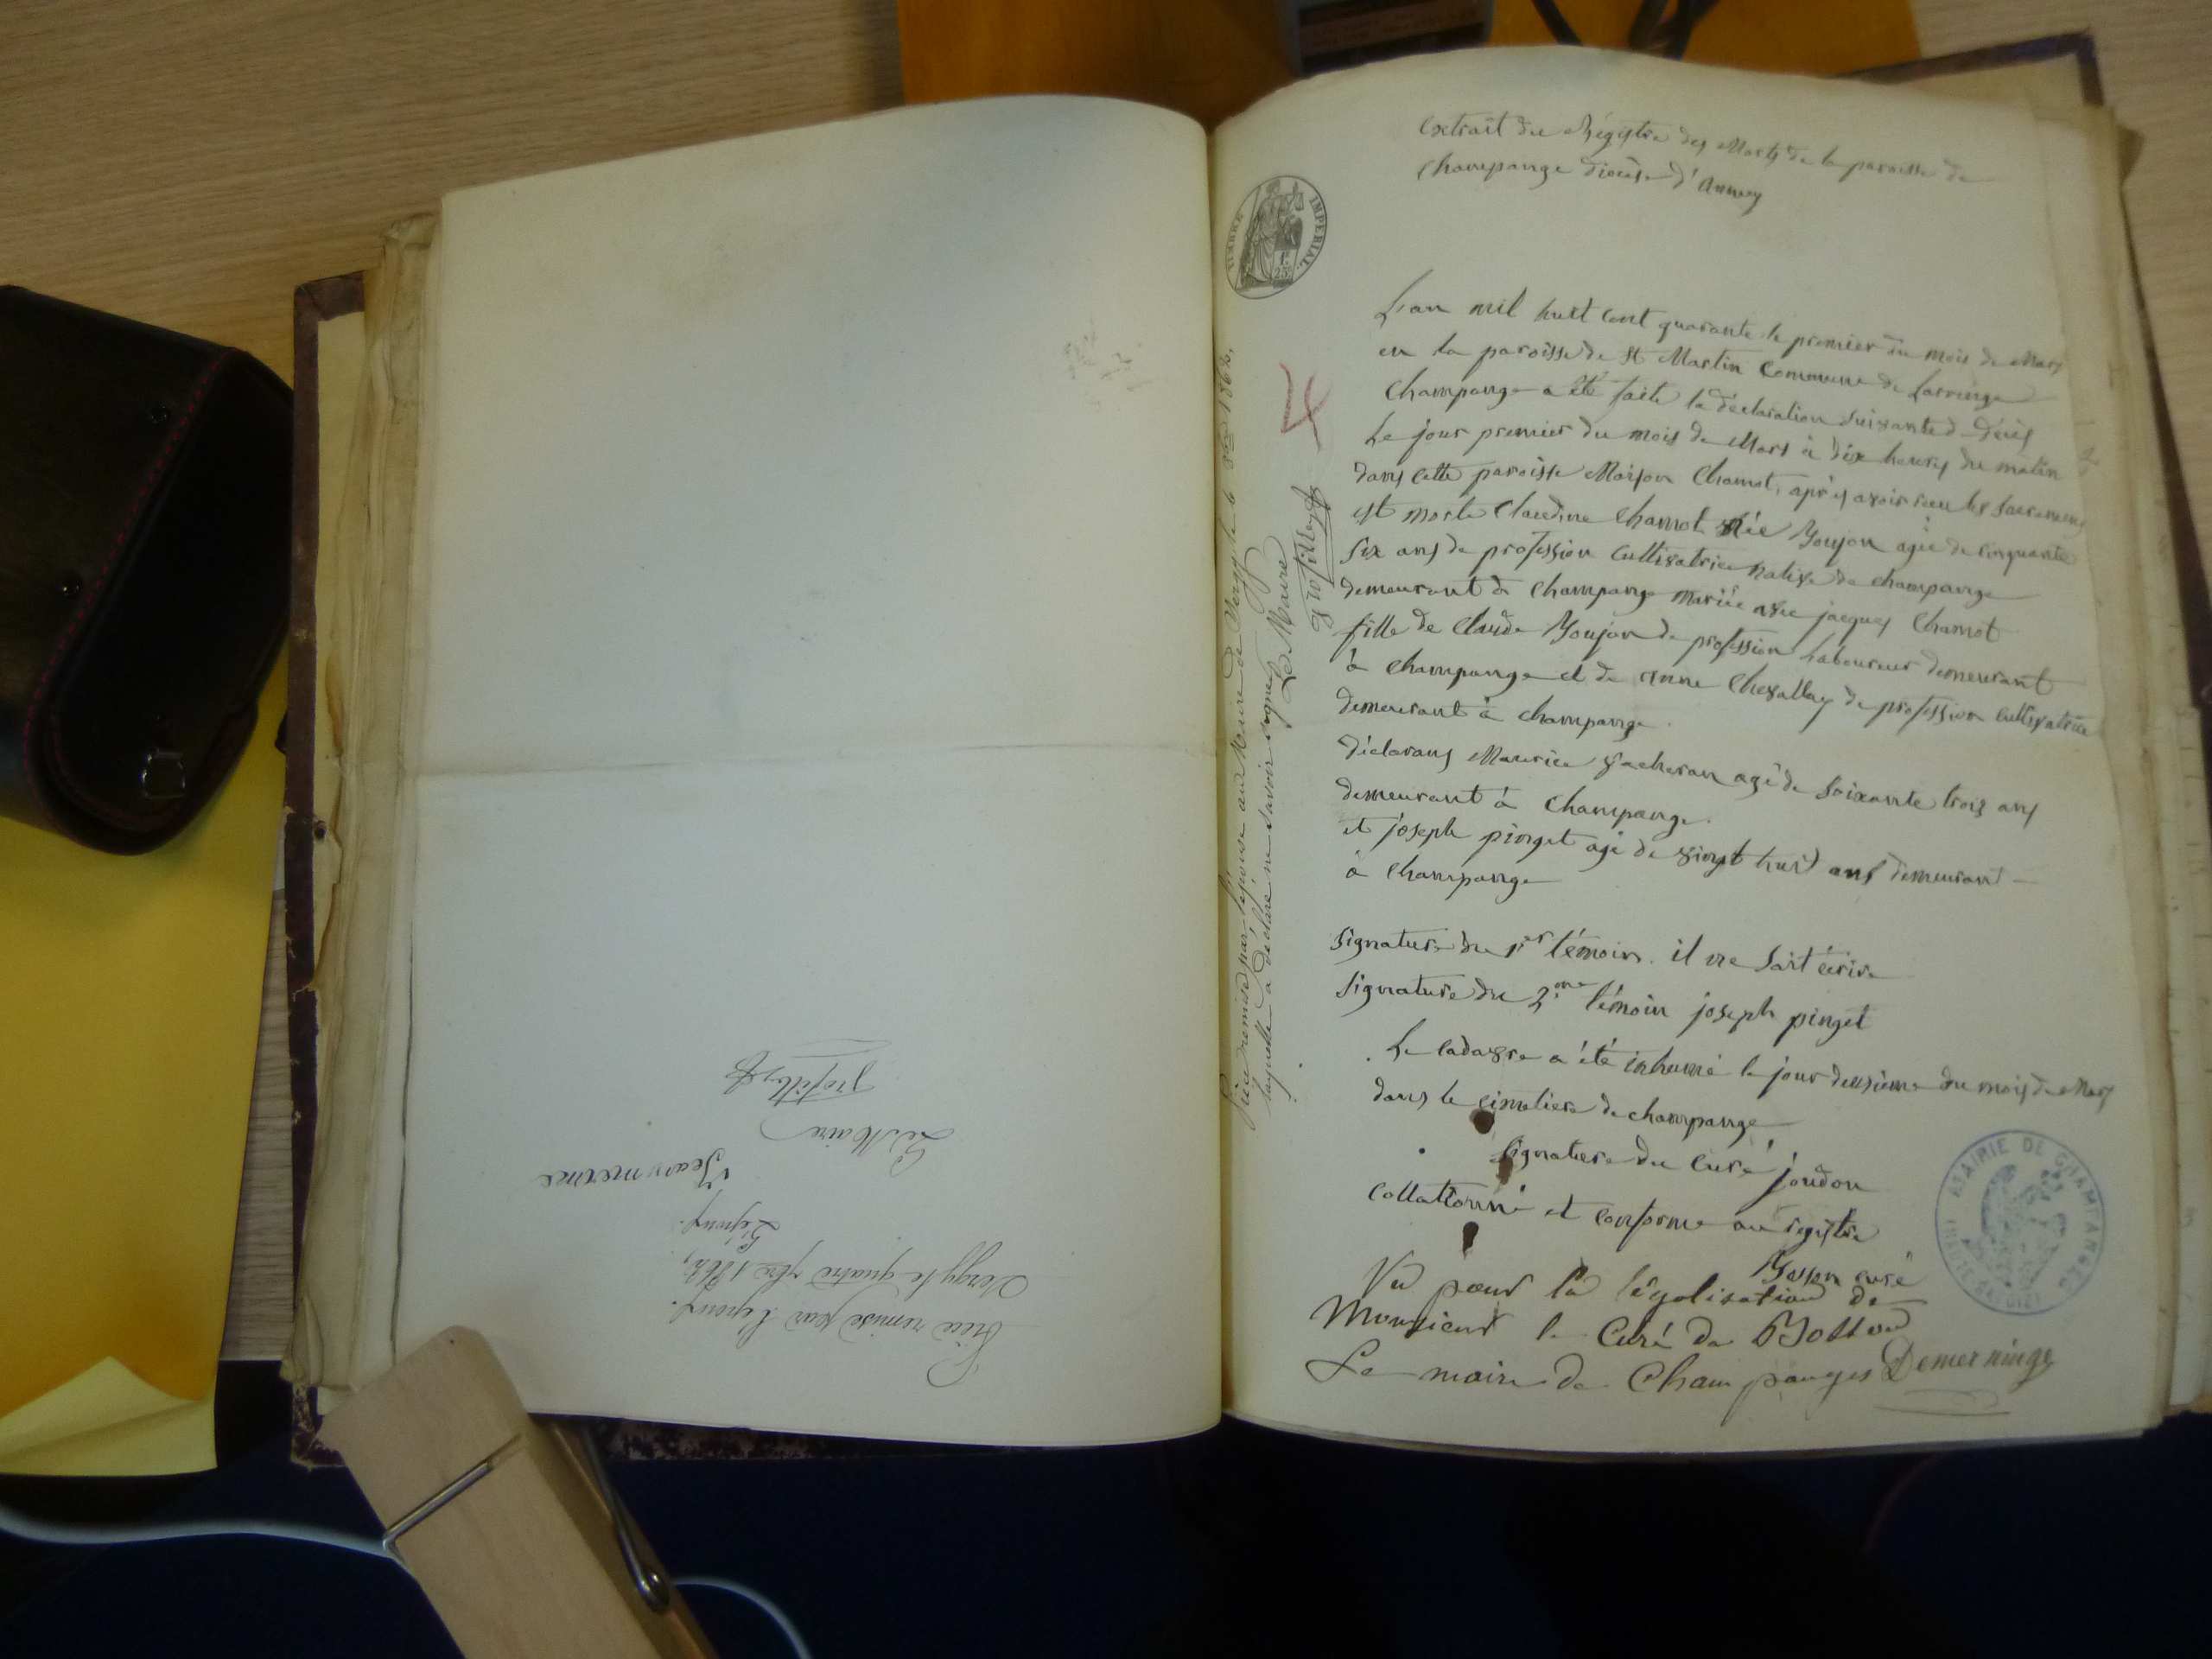 Extrait du Régistre des Morts de la paroisse de
Champange diocèse d'Annecy
TIMBRE IMPERIAL
1F
25C
L'an mil huit cent quarante le premier du mois de Mars
en la paroisse de St Martin Commune de Larringe
Champange a été faite la déclaration suivante d décès
Le jour premier du mois de Mars à dix heures du matin
dans cette paroisse Maison Chamot, après avoir reçu les sacremens
est morte Claudine Chamot née Goujon agée de cinquante
six ans de profession cultivatrice native de champange
demeurant à Champange mariée avec jacques Chamot
fille de Claude Goujon de profession Laboureur demeurant
à Champange et de anne Chevallay de profession cultivatrice
demeurant à champange
déclarans Maurice Vacheran agé de soixante trois ans
demeurant à Champange
et joseph pinget agé de vingt huit ans demeurant
à Champange
Signature du 1er témoin. il ne sait écrire
Signature du 2me témoin joseph pinget
Le cadavre a été inhumé le jour deuxième du mois de Mars
dans le cimetiere de champange
Signature du Curé joudon
Collationné et conforme au registre
curé
Vu pour la légalisation de
Monsieur le Curé de
Le maire de Champanges
MAIRIE DE CHAMPANGES
Pièce remise par l'épouse au Maire de Vergy le 4 7bre 1862,
laquelle a déclaré ne savoir signer
Le Maire
4
Pièce remise par l'épouse.
Vergy le quatre 7bre 1862,
L'épouse.
Le Maire